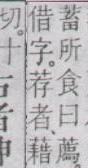 蓄所食曰薦。
借字。荐者、藉
切。十